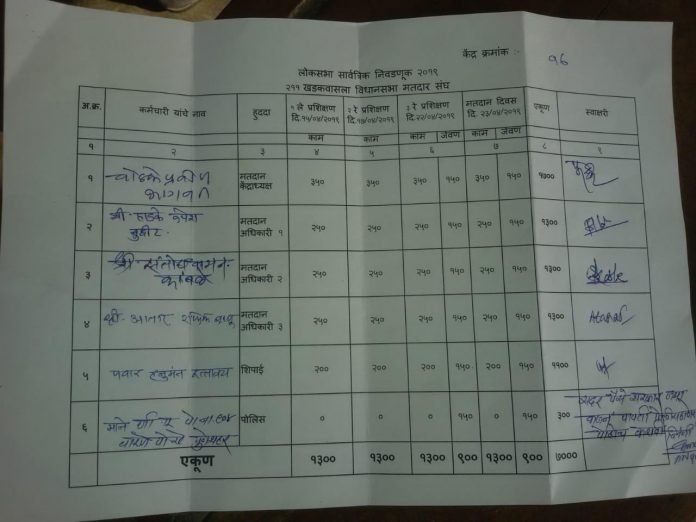 केंद्र क्रमांक :- ७६
लोकसभा सार्वत्रिक निवडणूक २०१९
२११ खडकवासला विधानसभा मतदार संघ
अ.क्र. कर्मचारी यांचे नाव हुददा १ ले प्रशिक्षण दि.१५/०४/२०१९ २ रे प्रशिक्षण दि.१७/०४/२०१९ ३ रे प्रशिक्षण दि.२२/०४/२०१९ मतदान दिवस दि. २३/०४/२०१९ एकूण स्वाक्षरी
काम काम काम जेवण काम जेवण
१ २ ३ ४ ५ ६ ७ ८ ९
१ भागवत मतदान केंद्राध्यक्ष ३५० ३५० ३५० १५० ३५० १५० १७००
२ श्री मतदान अधिकारी १ २५० २५० २५० १५० २५० १५० १३००
३ श्री संतोष कांबळे मतदान अधिकारी २ २५० २५० २५० १५० २५० १५० १३००
४ श्री मतदान अधिकारी ३ २५० २५० २५० १५० २५० १५० १३००
५ पवार हनुमंत दत्तात्रय शिपाई २०० २०० २०० १५० २०० १५० ११००
६ माने पोलिस ० ० ० १५० ० १५० ३००
एकूण १३०० १३०० १३०० ९०० १३०० ९०० ७०००